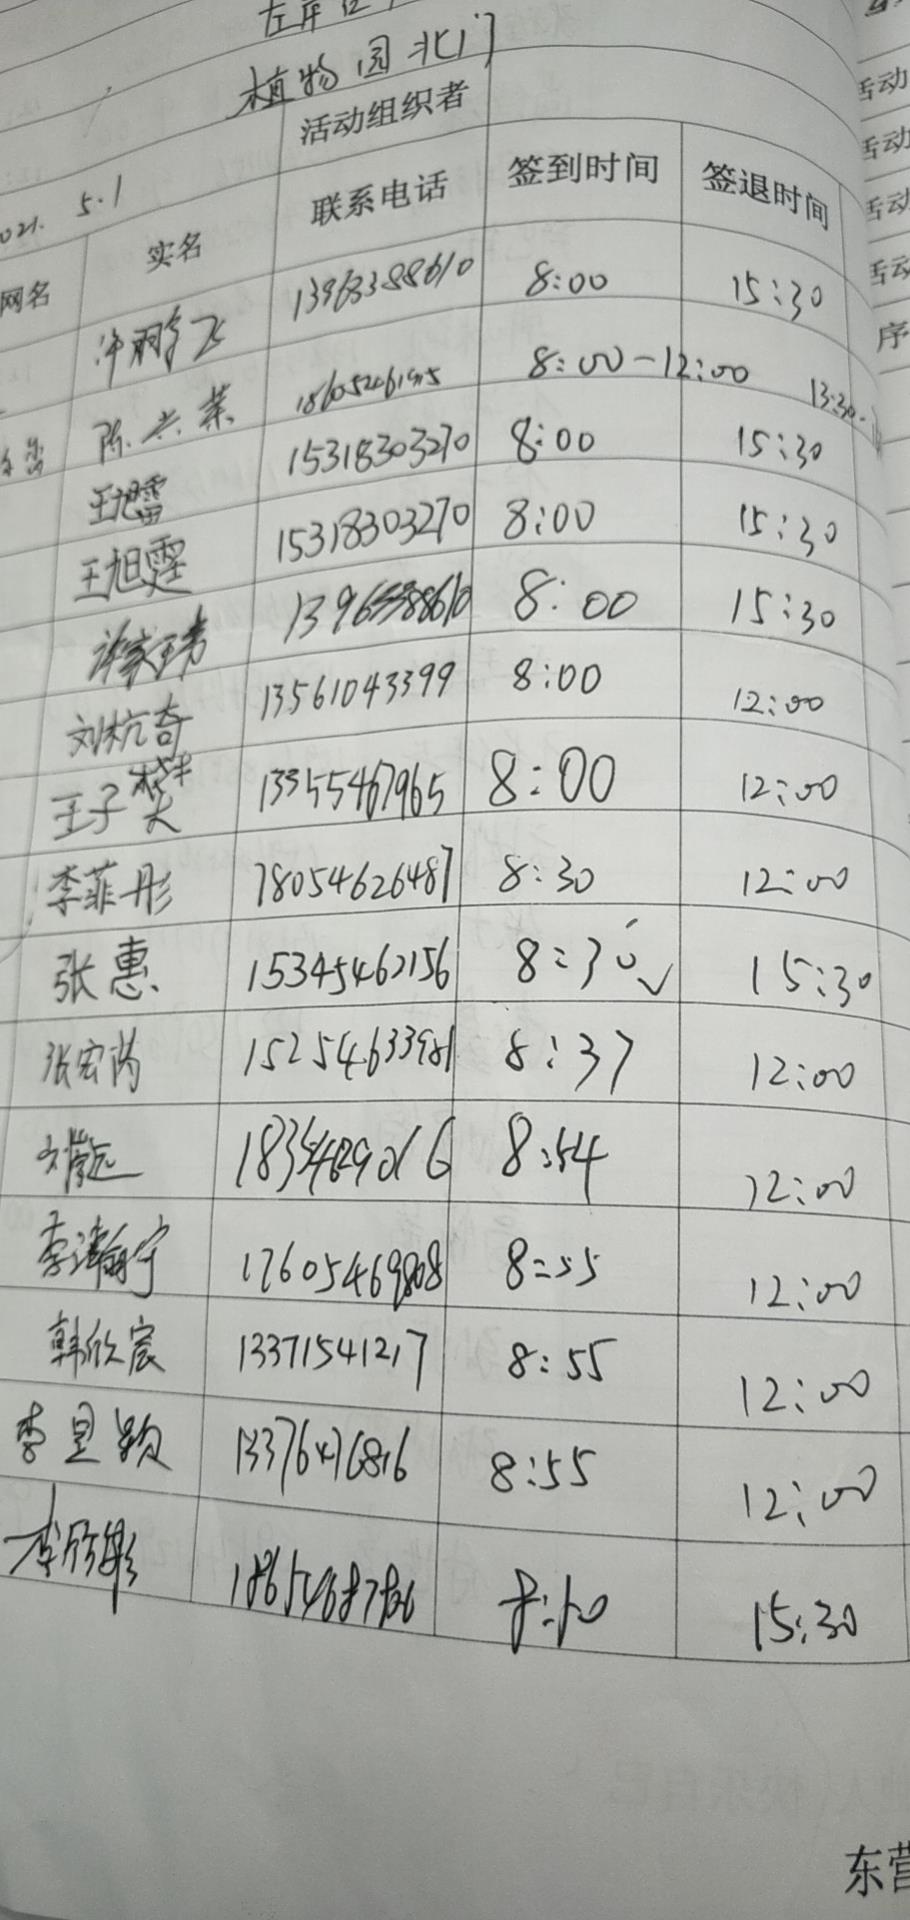 植物园北门
活动组织者
021. 5.1
网名 实名 联系电话 签到时间 签退时间
许鹏飞 13963388610 8:00 15:30
陈兴荣 8:00-12:00 13:30-
王旭雷 15318303270 8:00 15:30
王旭霆 15318303270 8:00 15:30
许家玮 8:00 15:30
刘杭奇 13561043399 8:00 12:00
王子樊 13355467965 8:00 12:00
李菲彤 18054626487 8:30 12:00
张惠 15345462156 8:30 ✓ 15:30
张宏芮 15254633981 8:37 12:00
8:54 12:00
17605469808 8:55 12:00
韩欣宸 13371541217 8:55 12:00
李昱颖 13376476816 8:55 12:00
李欣彤 8:50 15:30
活动
活动
活动
活动
序
东营